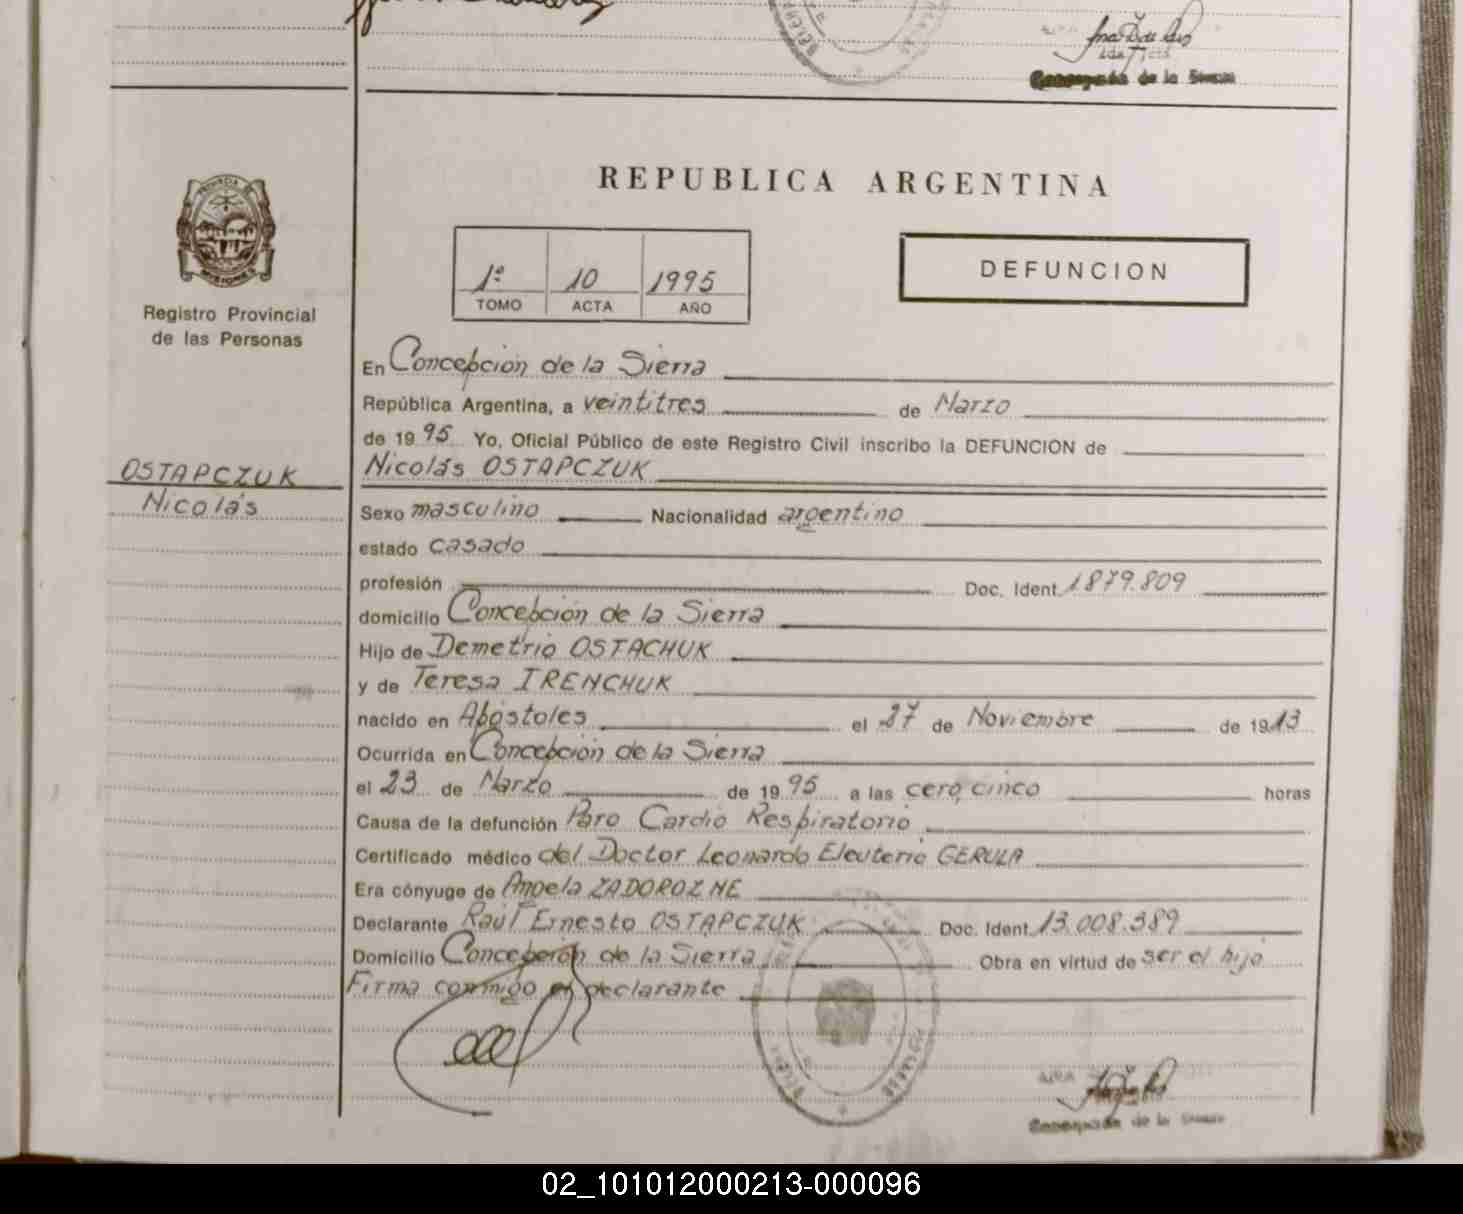 de la
REPUBLICA ARGENTINA
PROVINCIA DE
MISIONES
Registro Provincial
de las Personas
1º 10 1995
TOMO ACTA AÑO
DEFUNCION
En Concepción de la Sierra
República Argentina, a veintitres de Marzo
de 1995 Yo, Oficial Público de este Registro Civil inscribo la DEFUNCION de
OSTAPCZUK
Nicolás
Nicolás OSTAPCZUK
Sexo masculino Nacionalidad argentino
estado casado
profesión Doc. Ident. 1879.809
domicilio Concepción de la Sierra
Hijo de Demetrio OSTACHUK
y de Teresa IRENCHUK
nacido en Apóstoles el 27 de Noviembre de 1913
Ocurrida en Concepción de la Sierra
el 23 de Marzo de 1995 a las cero, cinco horas
Causa de la defunción Paro Cardio Respiratorio
Certificado médico del Doctor Leonardo Eleuterio GERULA
Era cónyuge de Angela ZADOROZNE
Declarante Raúl Ernesto OSTAPCZUK Doc. Ident. 13.008.389
Domicilio Concepción de la Sierra Obra en virtud de ser el hijo
Firma conmigo el declarante
de la
02_101012000213-000096